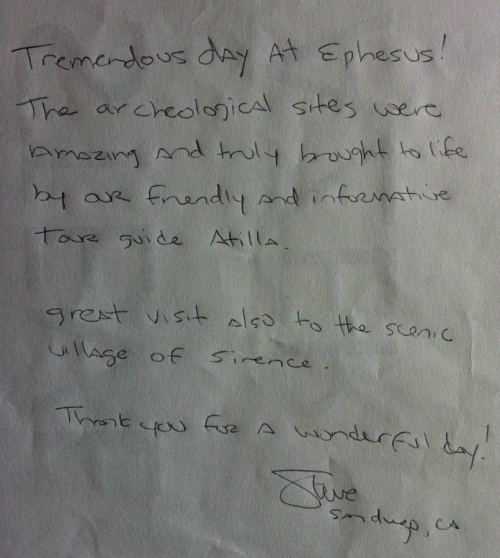 Tremendous day At Ephesus!
The archeological sites were
amazing and truly brought to life
by our friendly and informative
Tour guide Atilla.
great visit also to the scenic
village of Sirence.
Thank you for a wonderful day!
Steve
San Diego, CA